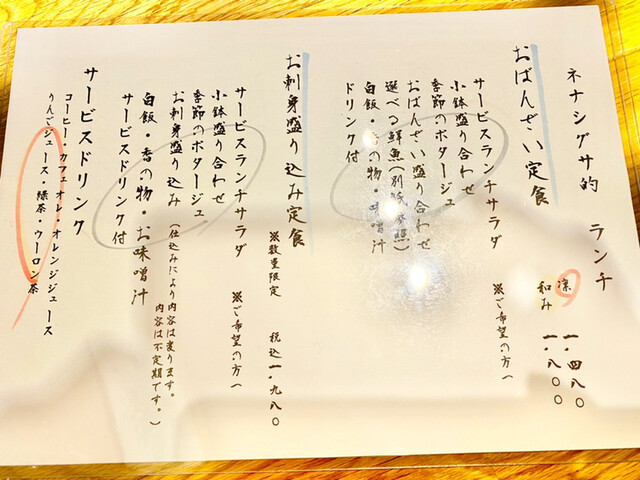 ネナシグサ的 ランチ
おばんざい定食
凛 一.四八〇
和み 一.八〇〇
サービスランチサラダ ※ご希望の方へ
小鉢盛り合わせ
季節のポタージュ
おばんざい盛り合わせ
選べる鮮魚(別紙参照)
白飯・香の物・味噌汁
ドリンク付
お刺身盛り込み定食
※数量限定 税込 一.九八〇
サービスランチサラダ ※ご希望の方へ
小鉢盛り合わせ
季節のポタージュ
お刺身盛り込み (仕込みにより内容は変ります。
内容は不定期です。)
白飯・香の物・お味噌汁
サービスドリンク付
サービスドリンク
コーヒー カフェオレ・オレンジジュース
りんごジュース・緑茶・ウーロン茶